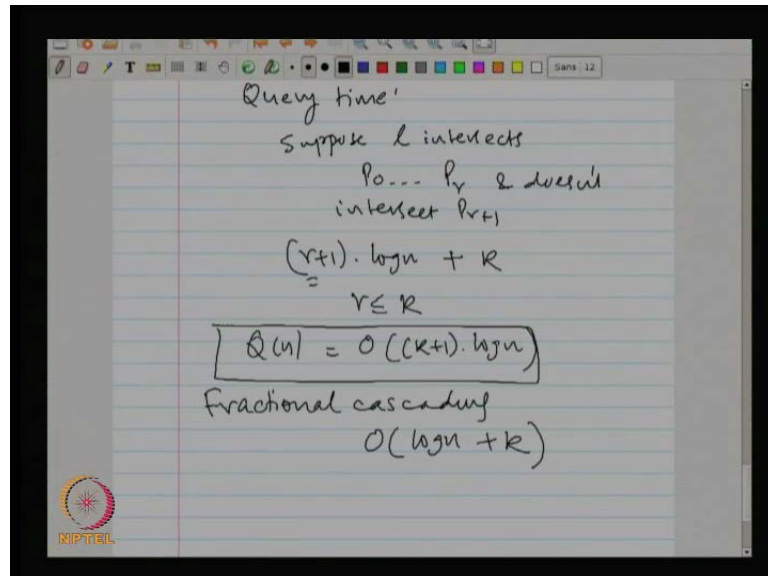 T Sans 12
Query time'
suppose l intersects
P0... Pr & doesn't
intersect Pr+1
(r+1). logn + k
r ≤ k
Q(n) = O((k+1). logn)
Fractional cascading
O(logn + k)
NPTEL